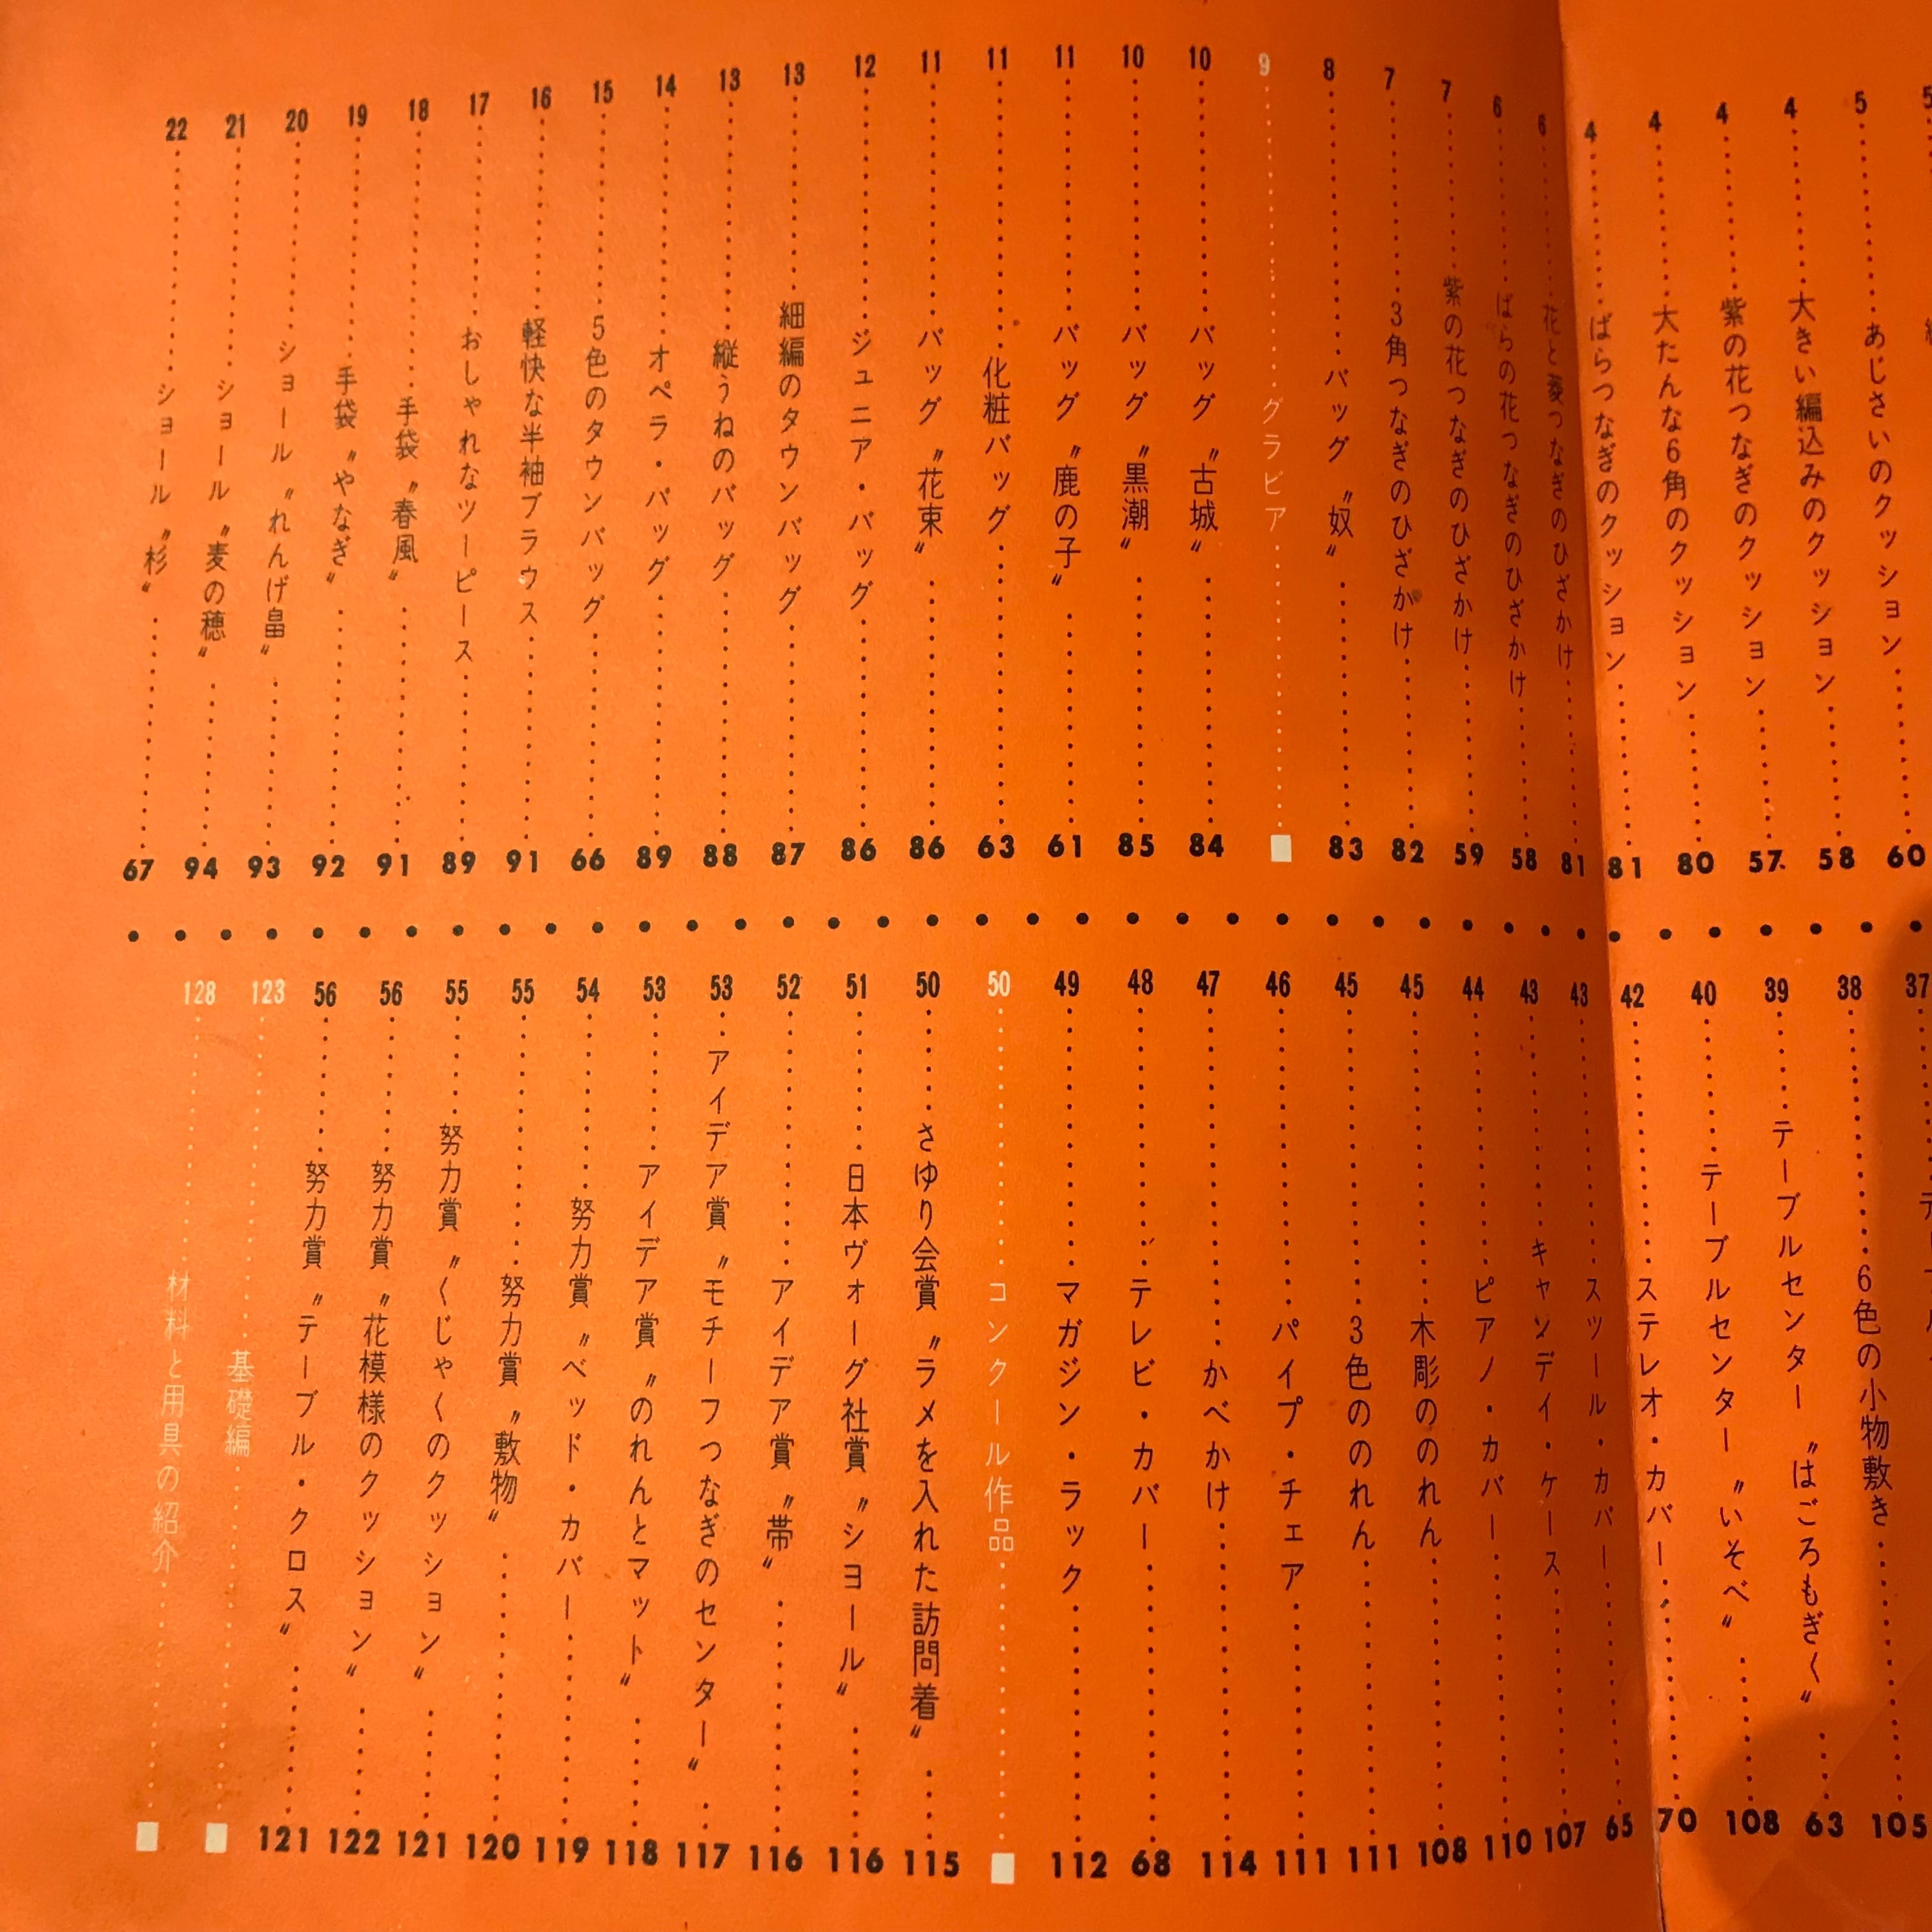 5
5……あじさいのクッション……60
4……大きい編込みのクッション……58
4……紫の花つなぎのクッション……57
4……大たんな6角のクッション……80
4……ばらつなぎのクッション……81
6……花と菱つなぎのひざかけ……81
6……ばらの花つなぎのひざかけ……58
7……紫の花つなぎのひざかけ……59
7……3角つなぎのひざかけ……82
8……バッグ〝奴〟……83
9……グラビア……■
10……バッグ〝古城〟……84
10……バッグ〝黒潮〟……85
11……バッグ〝鹿の子〟……61
11……化粧バッグ……63
11……バッグ〝花束〟……86
12……ジュニア・バッグ……86
13……細編のタウンバッグ……87
13……縦うねのバッグ……88
14……オペラ・バッグ……89
15……5色のタウンバッグ……66
16……軽快な半袖ブラウス……91
17……おしゃれなツーピース……89
18……手袋〝春風〟……91
19……手袋〝やなぎ〟……92
20……ショール〝れんげ畠〟……93
21……ショール〝麦の穂〟……94
22……ショール〝杉〟……67
37
38……6色の小物敷き……105
39……テーブルセンター〝はごろもぎく〟……63
40……テーブルセンター〝いそべ〟……108
42……ステレオ・カバー……70
43……スツール・カバー……65
43……キャンデイ・ケース……107
44……ピアノ・カバー……110
45……木彫ののれん……108
45……3色ののれん……111
46……パイプ・チェア……111
47……かべかけ……114
48……テレビ・カバー……68
49……マガジン・ラック……112
50……コンクール作品……■
50……さゆり会賞〝ラメを入れた訪問着〟……115
51……日本ヴォーグ社賞〝ショール〟……116
52……アイデア賞〝帯〟……116
53……アイデア賞〝モチーフつなぎのセンター〟……117
53……アイデア賞〝のれんとマット〟……118
54……努力賞〝ベッド・カバー……119
55……努力賞〝敷物〟……120
55……努力賞〝くじゃくのクッション〟……121
56……努力賞〝花模様のクッション〟……122
56……努力賞〝テーブル・クロス〟……121
123……基礎編……■
128……材料と用具の紹介……■